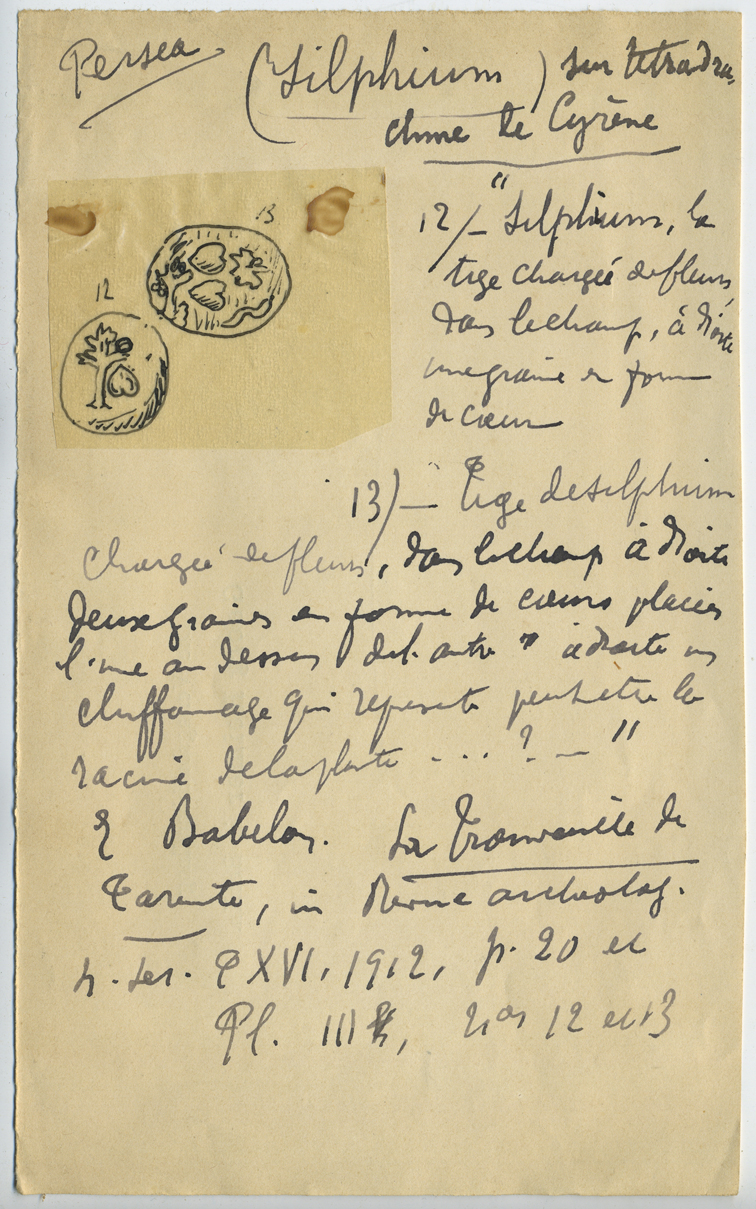 Persea (Silphium) sur tétradra-
chme de Cyrène
13
12
12/– "Silphium, la
tige chargée de fleurs,
dans le champ, à droite
une graine en forme
de cœur
13/– Tige de silphium
chargée de fleurs, dans le champ à droite
deux graines en forme de cœurs placées
l'une au dessus de l'autre à droite un
qui représente peut-être la
racine de la plante ... ? – "
E Babelon. La Trouvaille de
Tarente, in Revue archeolog.
4. ser. T XVI, 1912, p. 20 et
Pl. III, nos 12 et 13